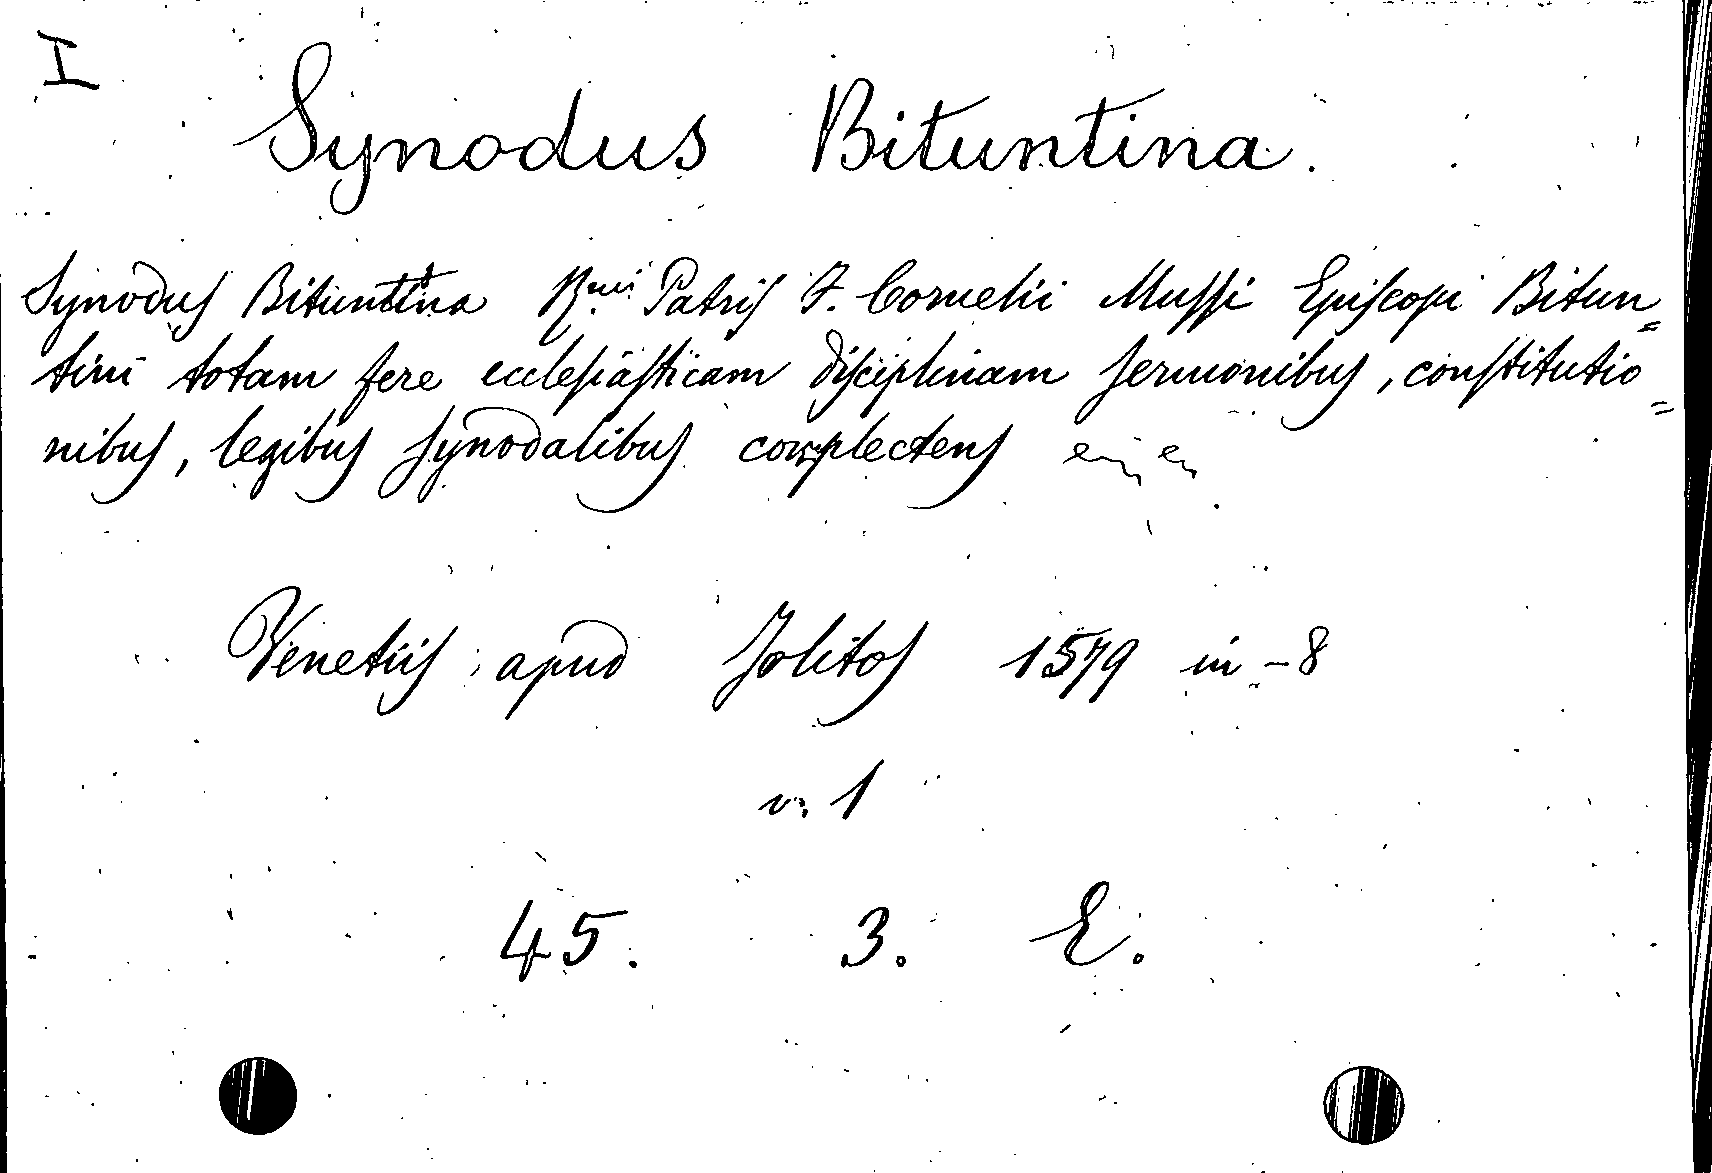 I
Synodus Bituntina.
Synodus Bituntina R.mi Patris F. Cornelii Mussi Episcopi Bitun=
tini totam fere ecclesiasticam disciplinam sermonibus, constitutio=
nibus, legibus synodalibus complectens
Venetiis apud Jolitos 1579 in-8
v. 1
45. 3. E.